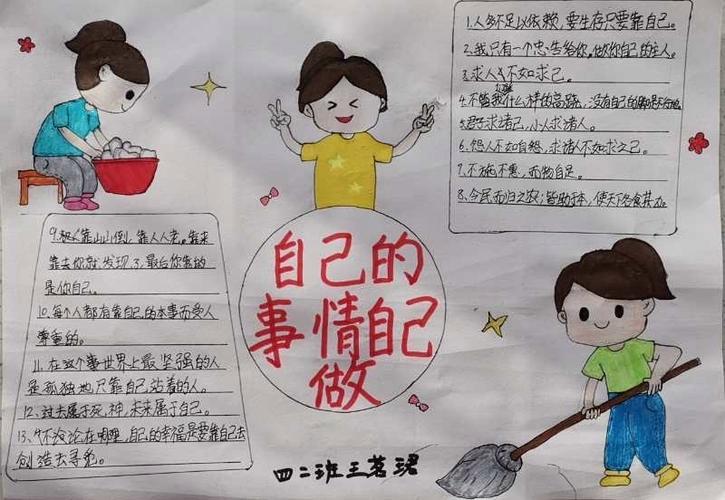 自己的
事情自己
做
1.人多不足以依赖,要生存只要靠自己。
2.我只有一个忠告给你,做你自己的主人。
3.求人不如求己。
4.不管我什么样的高跷,没有自己的脚是不行的。
5.君子求诸己,小人求诸人。
6.怨人不如自怨,求诸人不如求之己。
7.不施不惠,而物自足。
8.今民而归之农,皆助于本,使天下各食其力。
靠山山倒,靠人人老。靠来
靠去你就发现了,最后你靠的
是你自己。
10.每个人都有靠自己的本事而受人
尊重的。
11.在这个世界上最坚强的人
是孤独地只靠自己站着的人。
12.过去属于死神,未来属于自己。
13.不论在哪哩,自己的幸福是要靠自己去
创造去寻觅。
四二班王茗珺